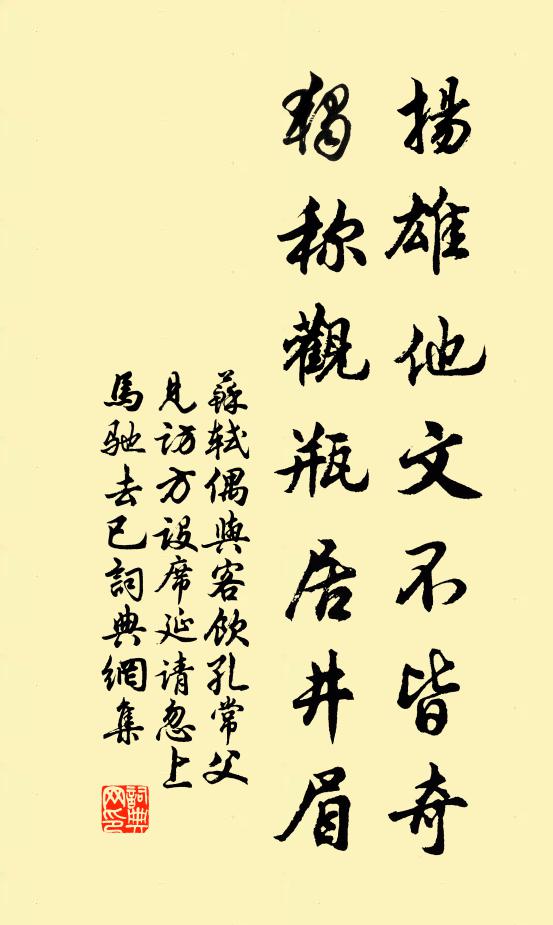 揚雄他文不皆奇
獨称觀瓶居井眉
蘇軾偶與客飲孔常父
見訪方設席延請忽上
馬馳去已詞典網集
詞典
网印